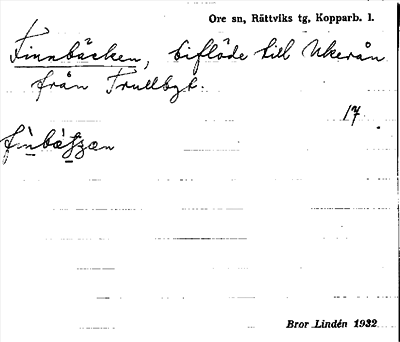 Ore sn, Rättviks tg, Kopparb. l.
Finnbäcken, biflöde till Ukerån
från Trullbyt.
17
Bror Lindén 1932